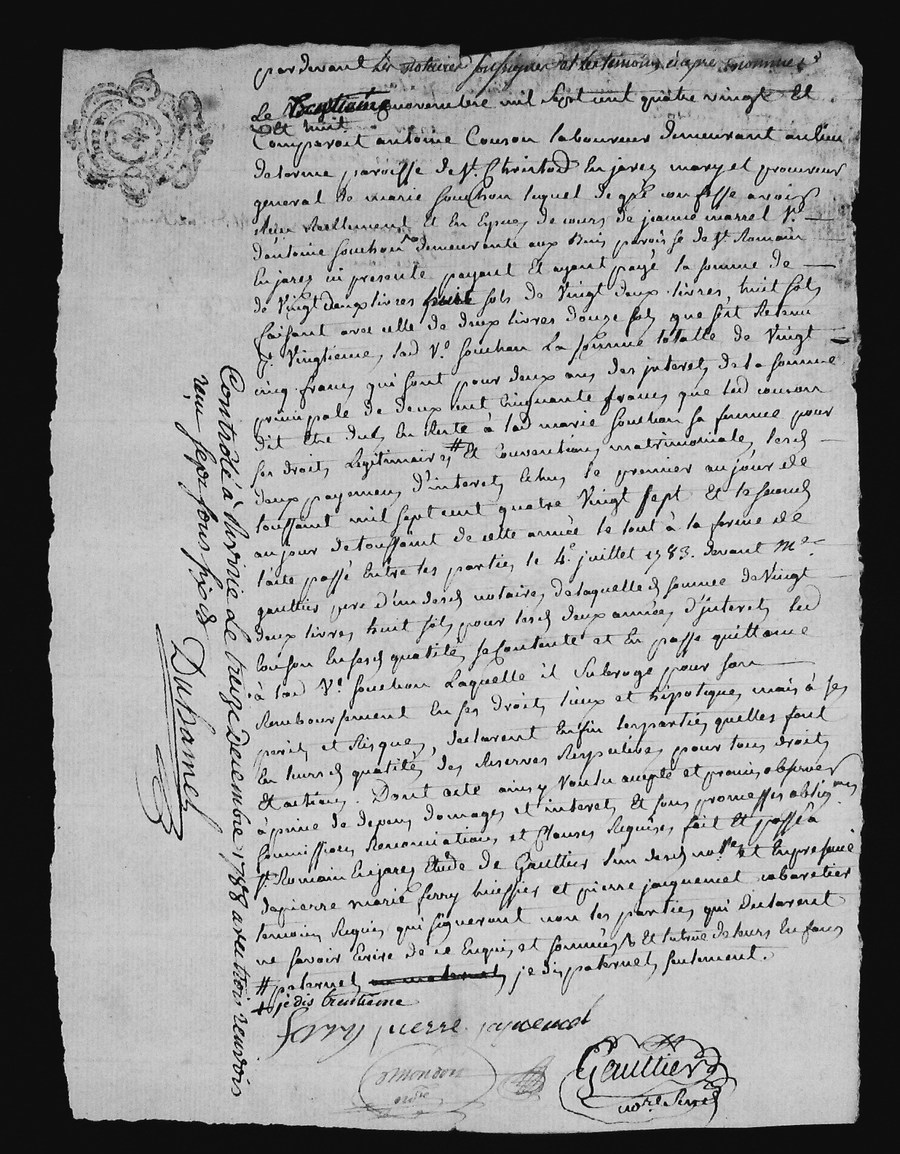 pardevant les notaires soussignés et les temoins cy apres nommés
Le Trentieme novembre mil sept cent quatre vingt et
et huit
Comparoit antoine Couson laboureur demeurant au lieu
de lorme paroisse de st. Christod En jarez mary et procureur
general de marie souchon lequel de gré confesse avoir
Reçu Reellement et En Especes de cours de jeanne marrel ve.
d'antoine souchon demeurante aux paroisse de st. Romain
En jares ici presente payant Et ayant payé la somme de
de Vingt deux livres huit sols de Vingt deux livres, huit sols
faisant avec celle de deux livres douze sols que s'est Retenu
pr. Vingtieme, lad ve. souchon La somme totalle de Vingt
cinq francs qui sont pour deux ans des interets de la somme
principale de deux cent cinquante francs que led couson
dit Etre dus En Reste à lad marie souchon sa femme pour
ses droits Legitimaires # Et Conventions matrimoniales, lesd
deux payemens d'interets Echus le premier au jour de
toussaint mil sept cent quatre Vingt sept Et le second
au jour de toussaint de cette année le tout à la forme de
l'acte passé Entre les parties le 4e. juillet 1783. devant Me.
gaultier pere d'un desd notaires, de laquelle d somme de Vingt
deux livres huit sols pour lesd deux années d'interets led
Couson En sesd qualités se Contente et En passe quittance
à lad Ve. souchon Laquelle il Subroge pour son
Remboursement En ses droits lieux et hipoteques, mais à ses
perils et Risques, declarent Enfin les parties quelles font
En leursd qualités des Reserves Respectives pour tous droits
Et actions. Dont acte ainsy Voulu accepté et promis observer
à peine de depens domages et interets, Et sous promesses obligons
soumissions Renonciations et Clauses Requises, fait Et passé à
st. Romain En jares Etude de Gaultier l'un desd nores. Et En presence
de pierre marie ferry huissier et pierre jaquemet cabaretier
temoins Requis qui signeront non les parties qui Declarent
ne savoir Ecrire de ce Enquis et sommées Et celle de leurs Enfans
# paternels ou maternels je dis paternels seulement.
+ je dis trentieme
ferry pierre jaquemet
Mondon
nore
Gaultier
nore. Servé
Contrôlé à Rivirie Le treize Decembre 1788 avec trois renvois
reçu sept sous six ds
DuHamel